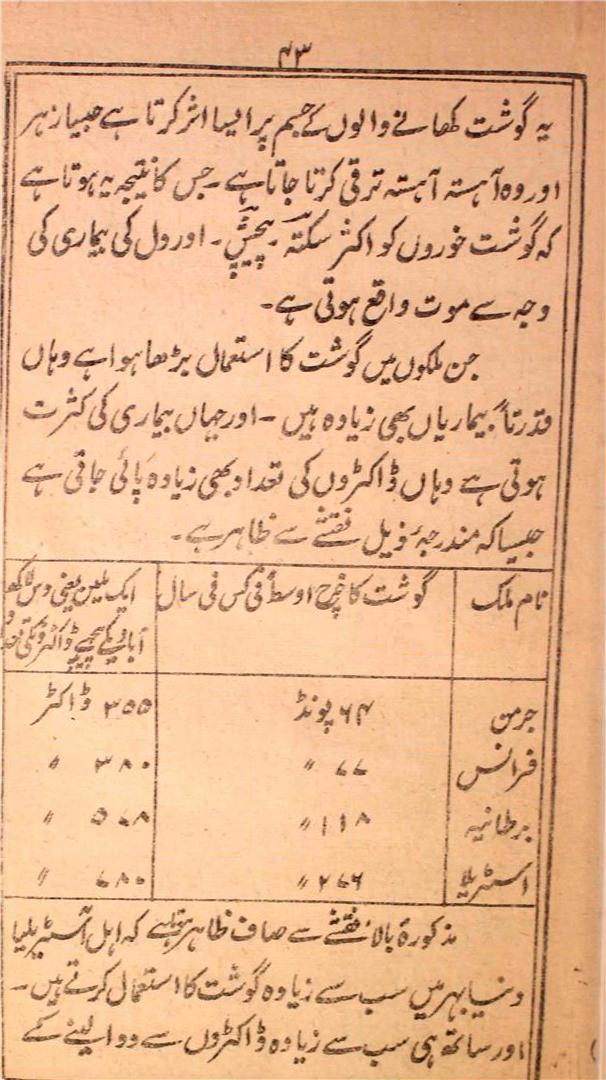 ۴۳
یہ گوشت کھانے والوں کے جسم پر ایسا اثر کرتا ہے جیسا زہر
اور وہ آہستہ آہستہ ترقی کرتا جاتا ہے۔ جس کا نتیجہ یہ ہوتا ہے
کہ گوشت خوروں کو اکثر سکتہ۔ پیچش۔ اور دل کی بیماری کی
وجہ سے موت واقع ہوتی ہے۔
جن ملکوں میں گوشت کا استعمال بڑھا ہوا ہے وہاں
قدرتاً بیماریاں بھی زیادہ ہیں۔ اور جہاں بیماری کی کثرت
ہوتی ہے وہاں ڈاکٹروں کی تعداد بھی زیادہ پائی جاتی ہے
جیسا کہ مندرجہ ذیل نقشے سے ظاہر ہے۔
نام ملک گوشت کا خرچ اوسط فی کس فی سال ایک ملین یعنی دس لاکھ
آبادی کے پیچھے ڈاکٹروں کی تعداد
جرمن ۶۴ پونڈ ۳۵۵ ڈاکٹر
فرانس ۷۷ ״ ۳۸۰ ״
برطانیہ ۱۱۸ ״ ۵۷۸ ״
اسٹریلیا ۲۷۶ ״ ۷۸۰ ״
مذکورۂ بالا نقشے سے صاف ظاہر ہوتا ہے کہ اہل آسٹریلیا
دنیا بھر میں سب سے زیادہ گوشت کا استعمال کرتے ہیں۔
اور ساتھ ہی سب سے زیادہ ڈاکٹروں سے دوا لینے کے